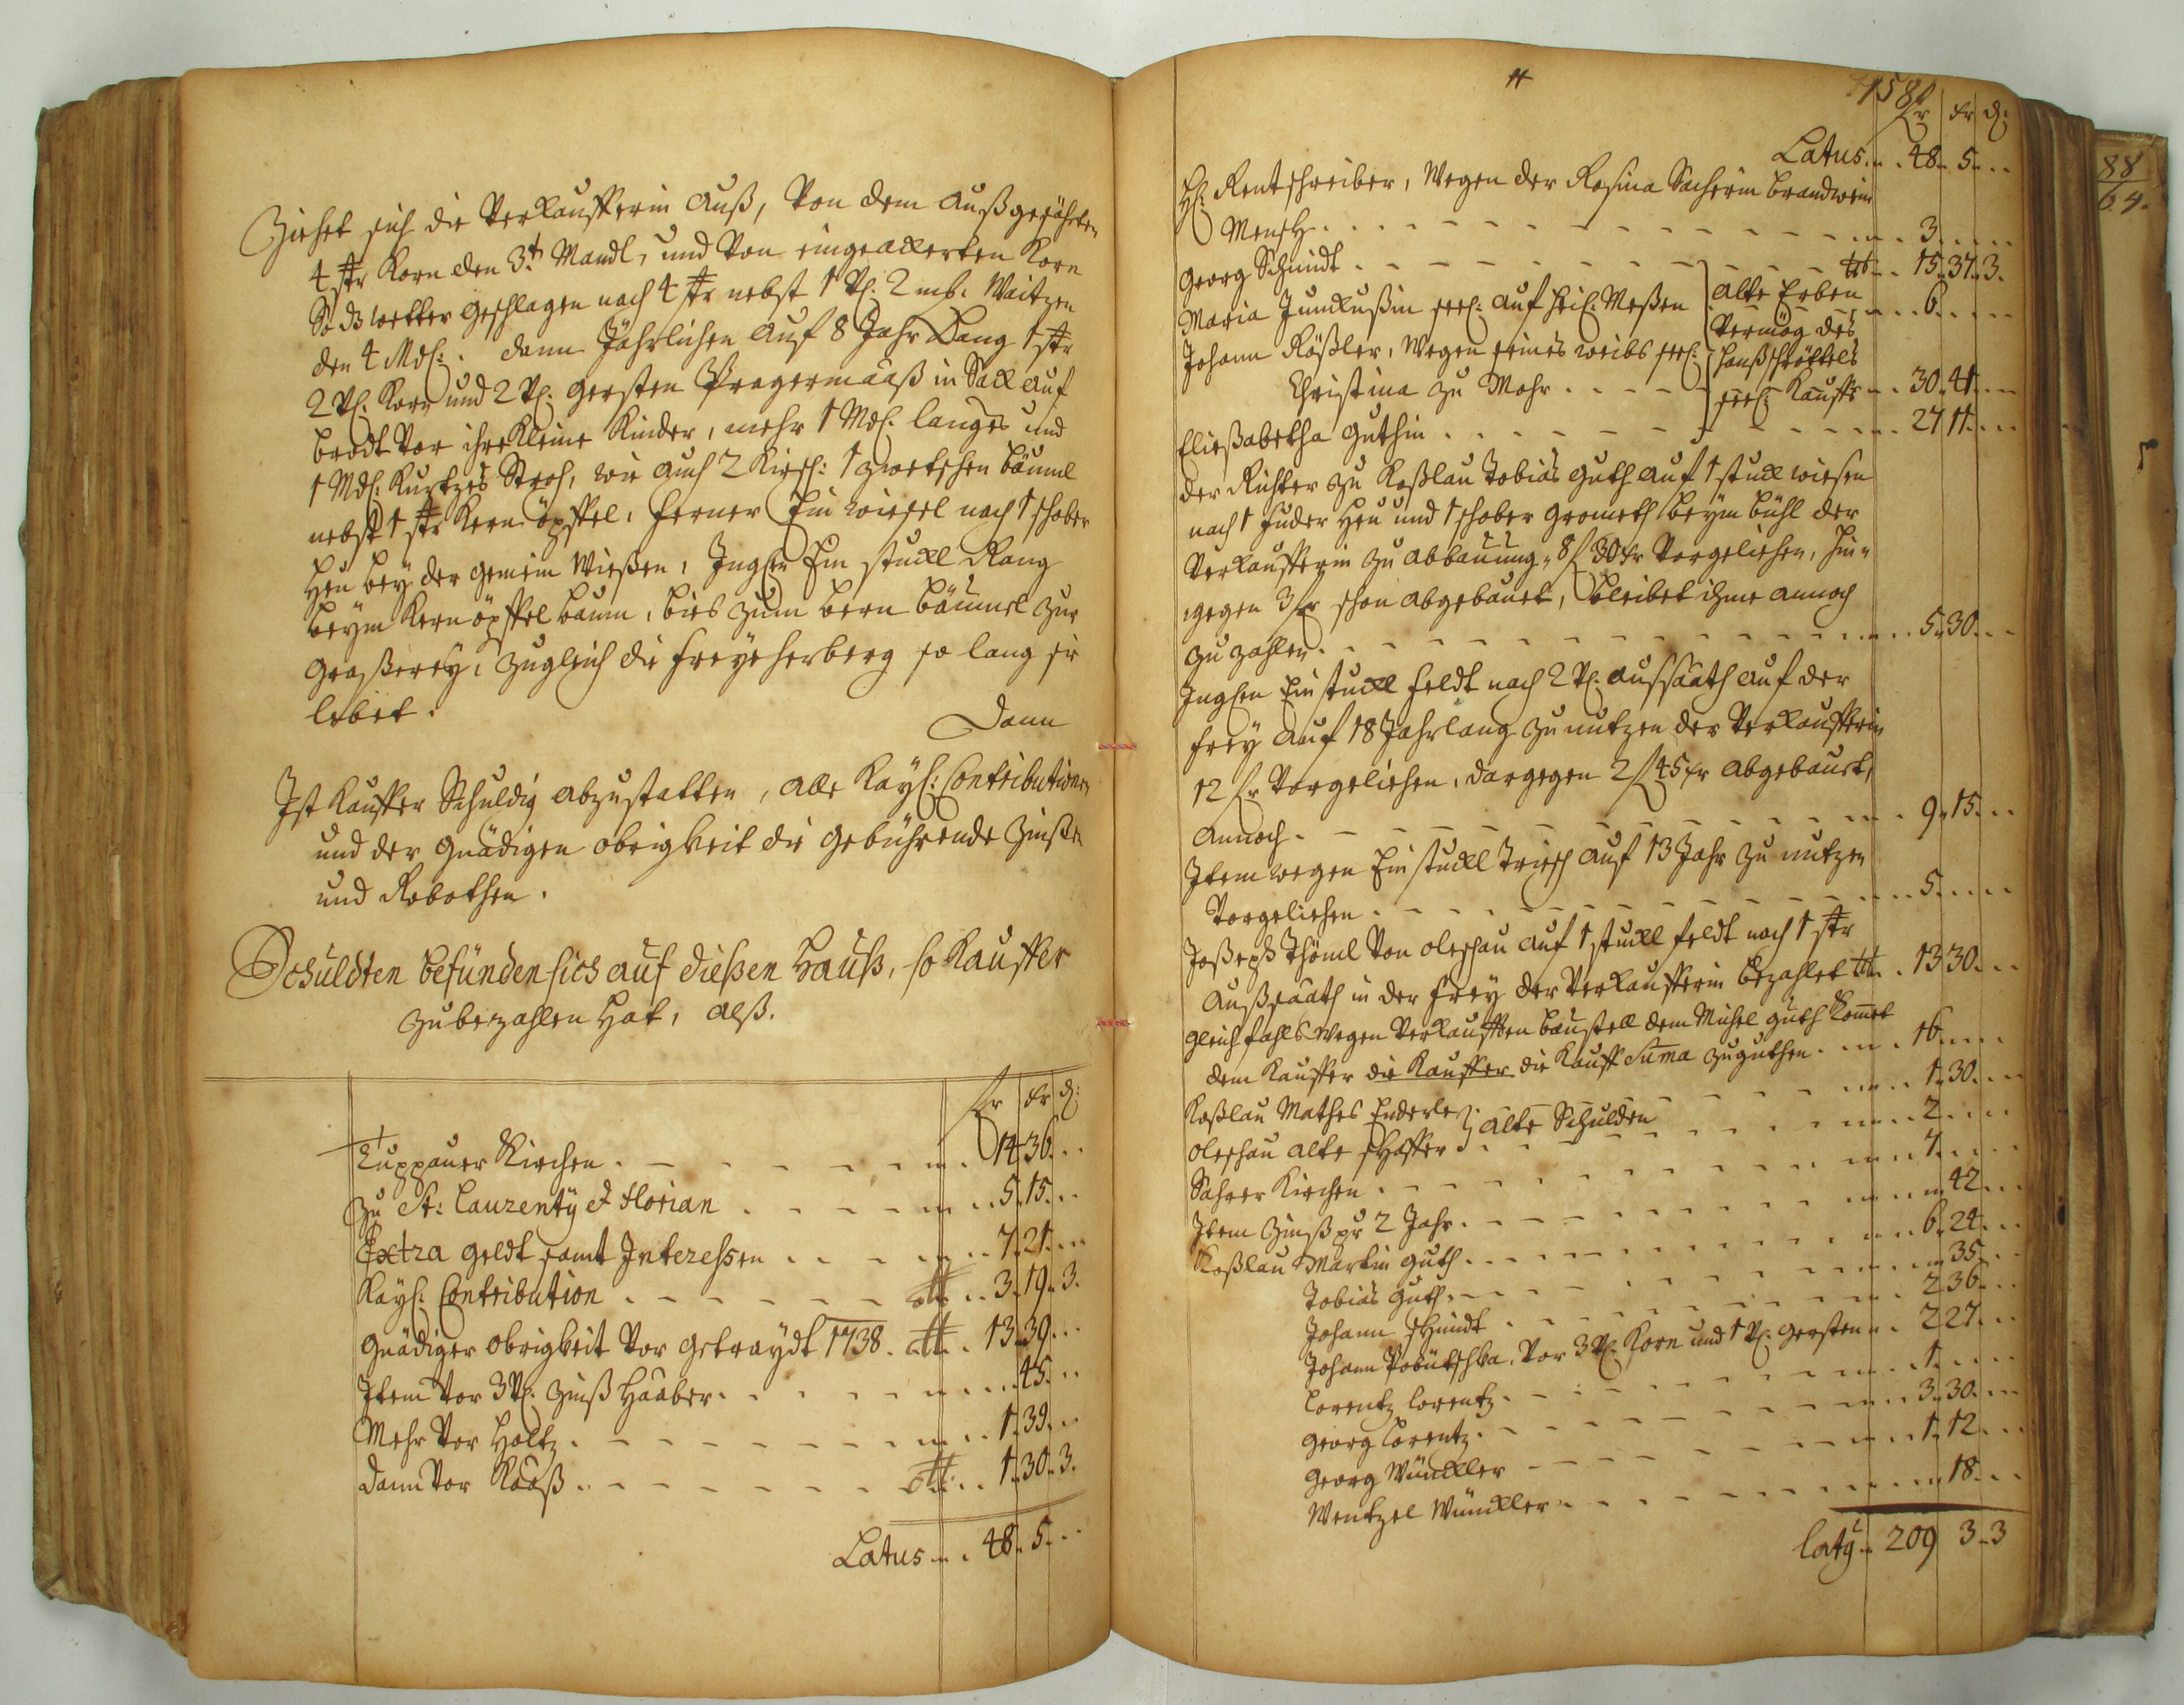 Ziehet sich die Verkaufferin auß, Von dem außgesähten
4 str Korn den 3t Mandl, und Von eingeakerten Korn
So ds wetter geschlagen nach 4 str nebst 1 Vl. 2 mß. Waitzen
den 4 Mdl: dann Jährlichen auf 8 Jahr Lang 1 str
2 Vl. Korn und 2 Vl. gersten Pragermaaß in Sack auf
brodt Vor ihre Kleine Kinder, mehr 1 Mdl. langes und
1 Mdl: Kurtzes Stroh, wie auch 2 Kirsch: 1 zwetschen bäuml
nebst 1 str Kern öpffel, ferner Ein wiesel nach 1 schober
Heu bey der gemein Wießen, Inglen Ein stückl Rang
beym Kernöpffel baum, bies zum bern bäuml zur
Graßerey, zugleich die freye herberg so lang sie
lebet.
Dann
Ist Kauffer Schuldig abzustatten, alle Kayl: Contributionen
und der Gnädigen obrigkeit die gebührende Zinßen
und Robothen.
Schuldten befünden sich auf dießen Hauß, so Kauffer
zu bezahlen Hat, alß.
fr xr d:
Luppauer Kirchen 14 36
Zu St: Laurenty et Florian 5 15
Extra geldt samt Interessen 7 21
Kayl: Contribution 3 19 3
Gnädiger obrigkeit Vor getraydt 1738 13 39
Item Vor 3 Vl. Zinß Haaber 45
Mehr Vor Holtz 1 39
dann Vor Kääß 1 30 3
Latus 48 5
158
fr xr d:
Latus 48 5
H: Rentschreiber, Wegen der Rosina Sacherin brandwein
Mensch 3
Georg Schmidt 15 37 3
Maria Junkußin seel: auf heil: Meßen 6
Johann Rößler, Wegen seines weibs seel:
Christina zu Mohr 30 41
alte Erben
Vermög des
Hanß
seel: Kauffs
Eliesabetha Guthin 27 11
der Richter zu Koßlau Tobias Guth auf 1 stuck wiesen
nach 1 fuder Heu und 1 schober grometh beym bühl der
Verkaufferin zu abbauung 8 f 30 xr Vorgeliehen, hin-
gegen 3 fr schon abgebauet, bleibet ihme annoch
zu zahlen 5 30
Inglen Ein stückl feldt nach 2 Vl. aussaath auf der
frey auf 18 Jahr lang zu nutzen der Verkaufferin
12 fr Vorgeliehen, dargegen 2 f 45 xr abgebauet,
annoch 9 15
Item wegen Ein stückl Triesch auf 13 Jahr zu nutzen
Vorgeliehen 5
Joßeph Thöml Von oleschau auf 1 stuckl feldt nach 1 str
Außsaath in der frey der Verkaufferin bezahlet 13 30
Gleichfahls wegen Verkaufften baustell dem Michel Guth Komet
dem Kauffer die Kauffer die Kauff Suma zuguthen 16
Koßlau Mathes Enderle 1 30
oleschau alte schaffer 2
alte Schulden
Sahrer Kirchen 7
Item Zinß pr 2 Jahr 42
Koßlau Martin Guth 6 24
Tobias Guth 35
Johann Schmidt 2 36
Johann Pobütschka, Vor 3 Vl. Korn und 1 Vl. gersten 2 27
Lorentz Lorentz 1
Georg Lorentz 3 30
Georg Wünckler 1 12
Wentzel Wünckler 18
laty 209 3 3
88
64.